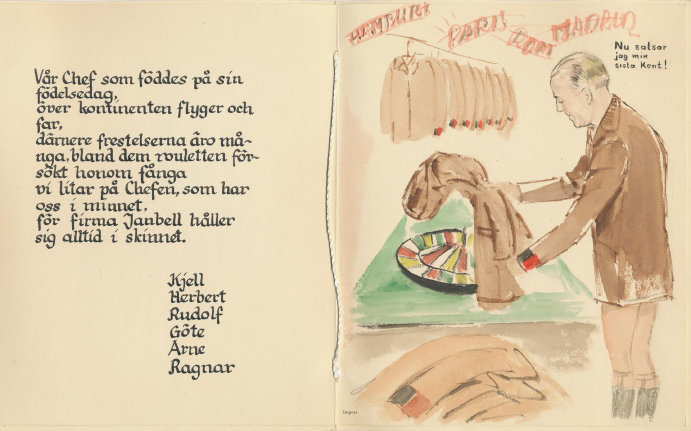 Vår Chef som föddes på sin
födelsedag,
över kontinenten flyger och
far,
därnere frestelserna äro må-
nga, bland dem rouletten för-
sökt honom fånga
vi litar på Chefen, som har
oss i minnet,
för firma Janbell håller
sig alltid i skinnet.
Kjell
Herbert
Rudolf
Göte
Arne
Ragnar
HAMBURG PARIS ROM MADRID
Nu satsar
jag min
sista Kont!